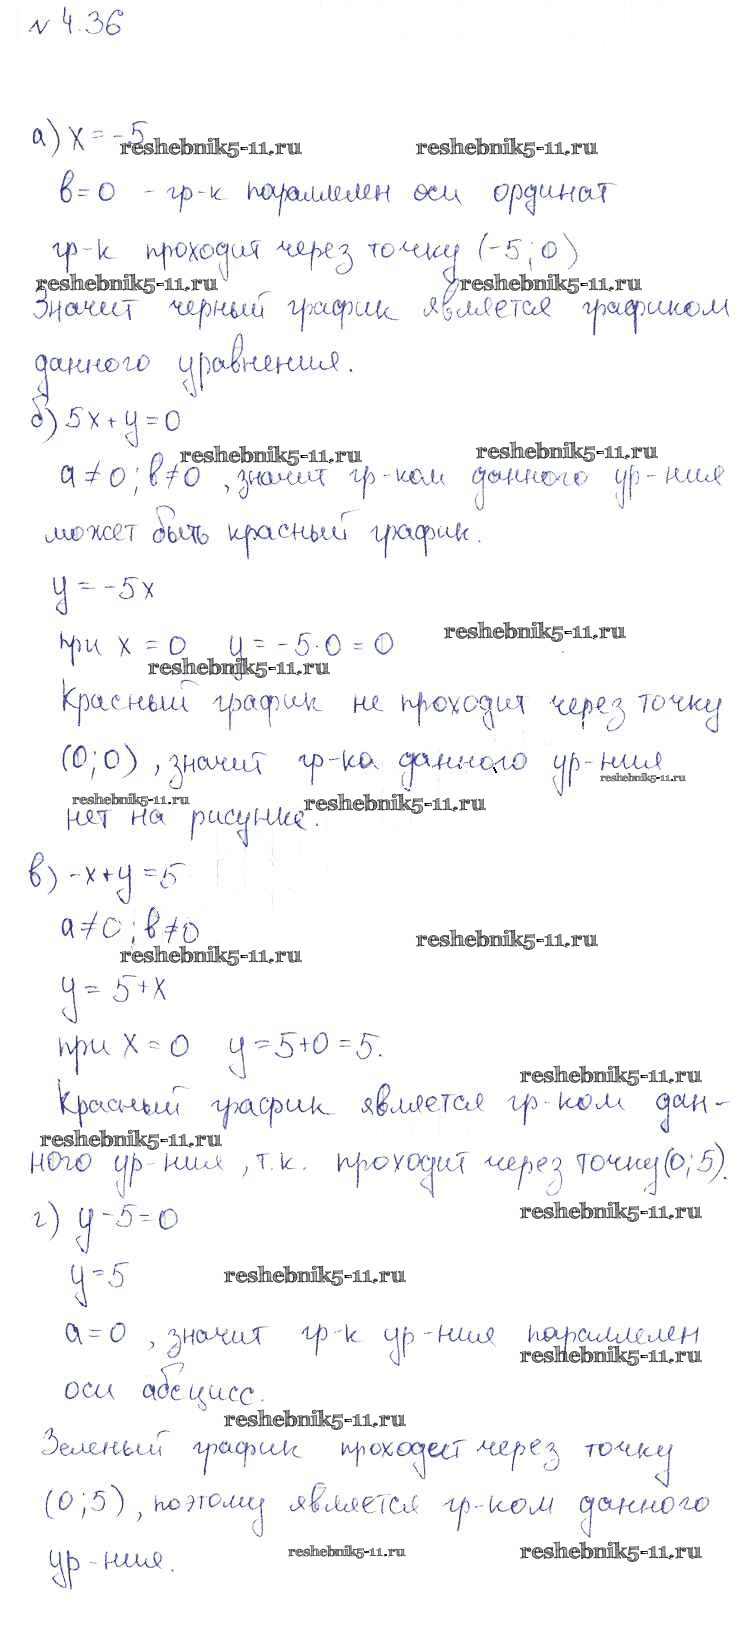 № 4.36
а) x = -5
reshebnik5-11.ru reshebnik5-11.ru
в=0 - гр-к параллелен оси ординат
гр-к проходит через точку (-5; 0)
reshebnik5-11.ru reshebnik5-11.ru
Значит черный график является графиком
данного уравнения.
б) 5x + y = 0
reshebnik5-11.ru reshebnik5-11.ru
a ≠ 0; в ≠ 0, значит гр-ком данного ур-ния
может быть красный график.
y = -5x
при x = 0 y = -5·0 = 0 reshebnik5-11.ru
reshebnik5-11.ru
Красный график не проходит через точку
(0; 0), значит гр-ка данного ур-ния
reshebnik5-11.ru
reshebnik5-11.ru reshebnik5-11.ru
нет на рисунке.
в) -x + y = 5
a ≠ 0; в ≠ 0 reshebnik5-11.ru
reshebnik5-11.ru
y = 5 + x
при x = 0 y = 5 + 0 = 5.
reshebnik5-11.ru
Красный график является гр-ком дан-
reshebnik5-11.ru
ного ур-ния, т.к. проходит через точку (0; 5).
г) y - 5 = 0 reshebnik5-11.ru
y = 5 reshebnik5-11.ru
a = 0, значит гр-к ур-ния параллелен
reshebnik5-11.ru
оси абсцисс.
reshebnik5-11.ru
Зеленый график проходит через точку
(0; 5), поэтому является гр-ком данного
ур-ния. reshebnik5-11.ru reshebnik5-11.ru